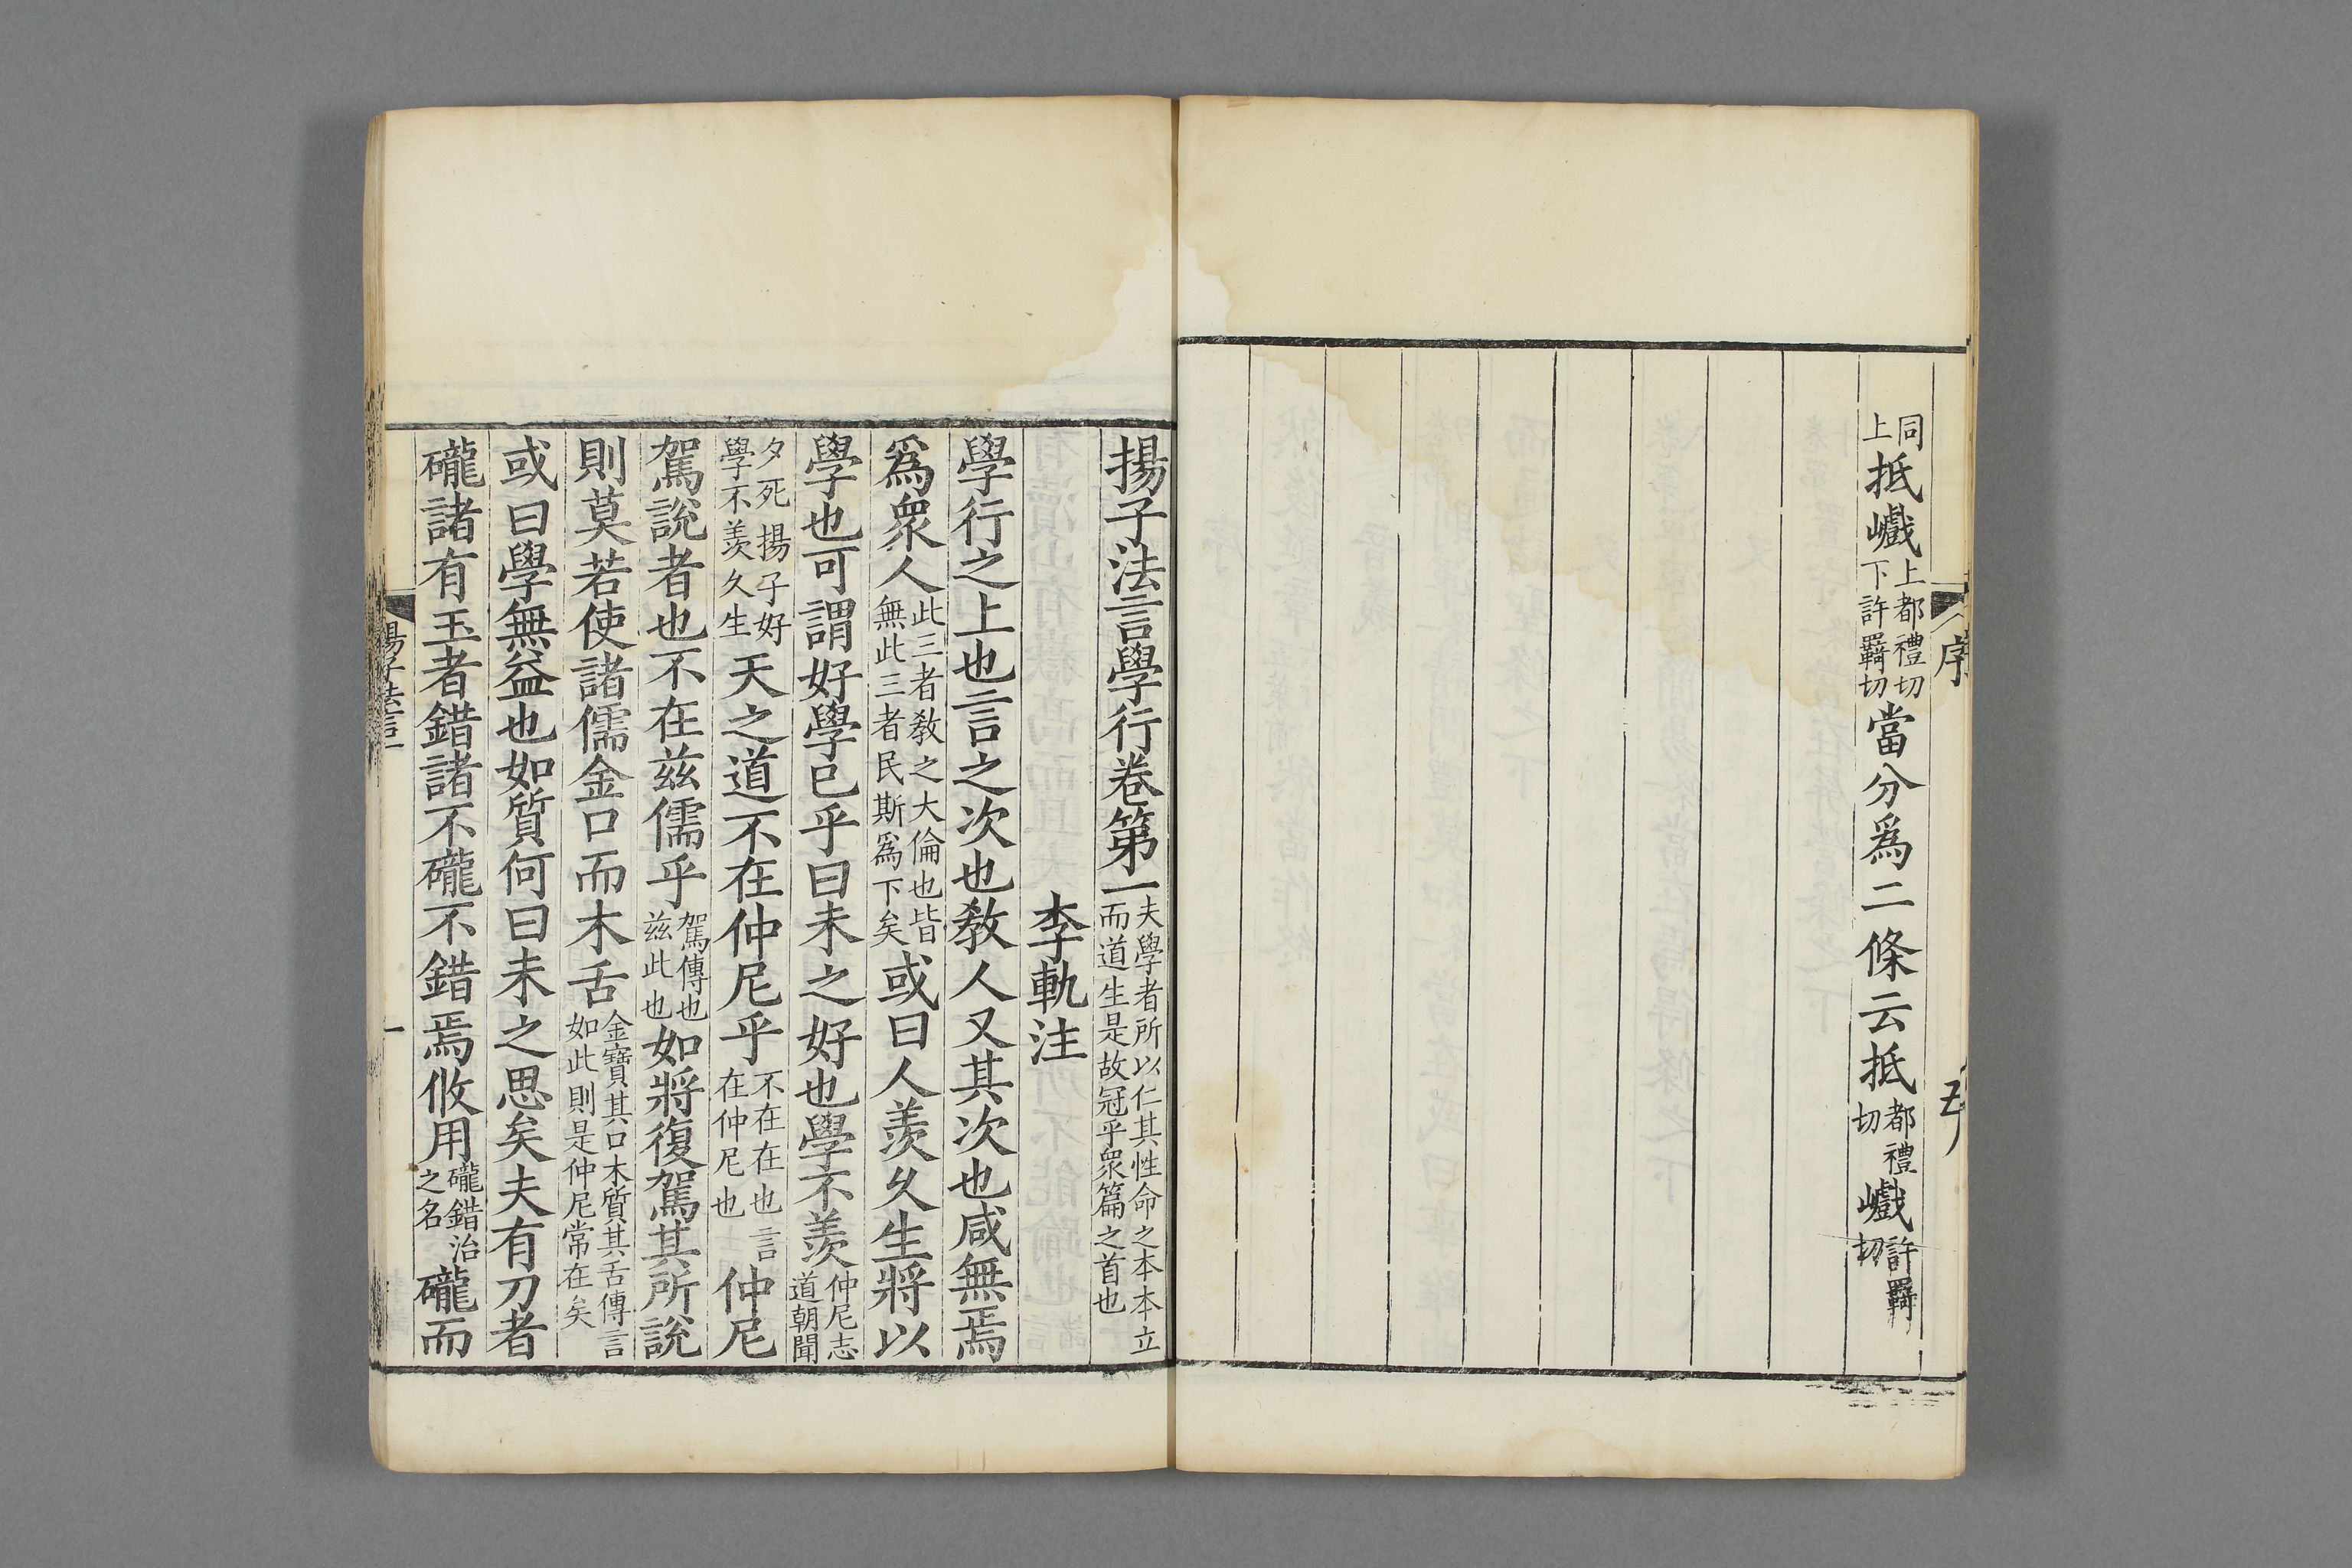 序
五
同上抵巇上都禮切下許羈切當分爲二條云抵都禮切巇許羈切
揚子法言學行卷第一夫學者所以仁其性命之本本立而道生是故冠乎衆篇之首也
李軌注
學行之上也言之次也教人又其次也咸無焉
爲衆人此三者教之大倫也皆無此三者民斯爲下矣或曰人羨久生將以
學也可謂好學已乎曰未之好也學不羨仲尼志道朝聞
夕死揚子好學不羨久生天之道不在仲尼乎不在在也言在仲尼也仲尼
駕說者也不在兹儒乎駕傳也兹此也如將復駕其所說
則莫若使諸儒金口而木舌金寶其口木質其舌傳言如此則是仲尼常在矣
或曰學無益也如質何曰未之思矣夫有刀者
礲諸有玉者錯諸不礲不錯焉攸用礲錯治之名礲而
揚子法言一
一